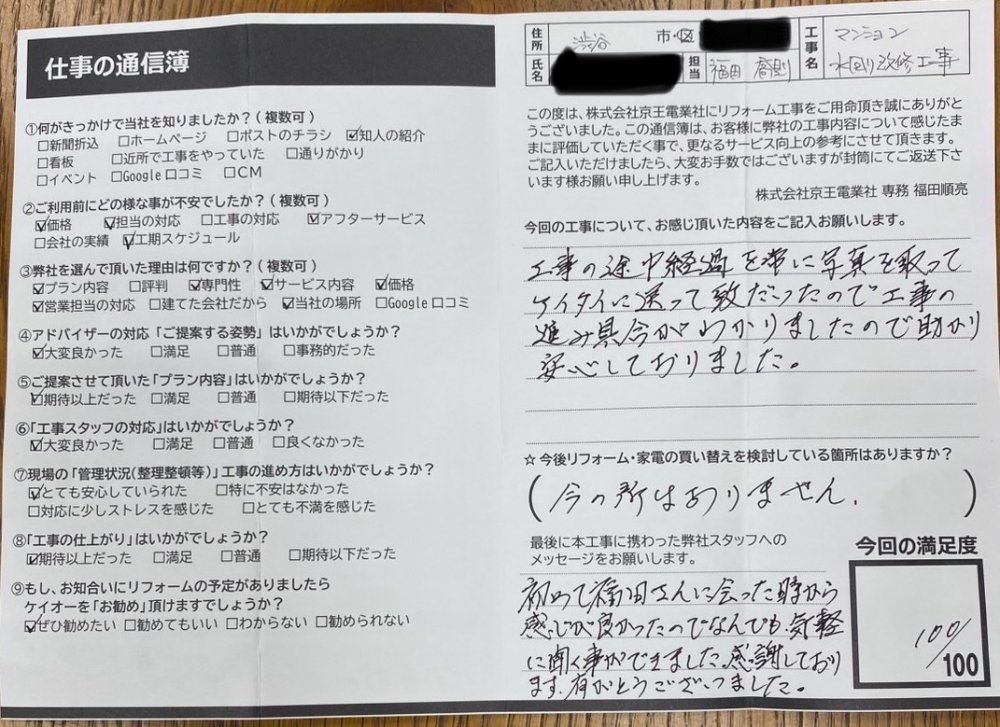 仕事の通信簿
①何がきっかけで当社を知りましたか?(複数可)
□新聞折込 □ホームページ □ポストのチラシ ☑知人の紹介
□看板 □近所で工事をやっていた □通りがかり
□イベント □Google口コミ □CM
②ご利用前にどの様な事が不安でしたか?(複数可)
☑価格 ☑担当の対応 □工事の対応 ☑アフターサービス
□会社の実績 ☑工期スケジュール
③弊社を選んで頂いた理由は何ですか?(複数可)
☑プラン内容 □評判 ☑専門性 ☑サービス内容 ☑価格
☑営業担当の対応 □建てた会社だから ☑当社の場所 □Google口コミ
④アドバイザーの対応「ご提案する姿勢」はいかがでしょうか?
☑大変良かった □満足 □普通 □事務的だった
⑤ご提案させて頂いた「プラン内容」はいかがでしょうか?
☑期待以上だった □満足 □普通 □期待以下だった
⑥「工事スタッフの対応」はいかがでしょうか?
☑大変良かった □満足 □普通 □良くなかった
⑦現場の「管理状況(整理整頓等)」工事の進め方はいかがでしょうか?
☑とても安心していられた □特に不安はなかった
□対応に少しストレスを感じた □とても不満を感じた
⑧「工事の仕上がり」はいかがでしょうか?
☑期待以上だった □満足 □普通 □期待以下だった
⑨もし、お知合いにリフォームの予定がありましたら
ケイオーを「お勧め」頂けますでしょうか?
☑ぜひ勧めたい □勧めてもいい □わからない □勧められない
住所 渋谷 市・区
氏名 担当 福田
工事名 マンション
水回り改修工事
この度は、株式会社京王電業社にリフォーム工事をご用命頂き誠にありがと
うございました。この通信簿は、お客様に弊社の工事内容について感じたま
まに評価していただく事で、更なるサービス向上の参考にさせて頂きます。
ご記入いただけましたら、大変お手数ではございますが封筒にてご返送下さ
います様お願い申し上げます。
株式会社京王電業社 専務 福田順亮
今回の工事について、お感じ頂いた内容をご記入お願いします。
工事の途中経過を常に写真を取って
ケイタイに送って致だったので工事の
進み具合がわかりましたので助かり
安心しておりました。
☆今後リフォーム・家電の買い替えを検討している箇所はありますか?
(今の所はありません.)
最後に本工事に携わった弊社スタッフへの
メッセージをお願いします。
初めて福田さんに会った時から
感じが良かったのでなんでも気軽
に聞く事ができました。感謝しており
ます。有がとうございました。
今回の満足度
100/100